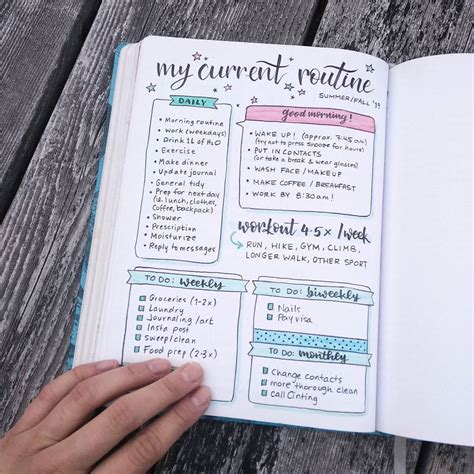 my current routine
SUMMER/FALL '19
DAILY
Morning routine
Work (weekdays)
Drink 1L of H2O
Exercise
Make dinner
Update journal
General tidy
Prep for next day
(L. lunch, clothes,
Coffee, backpack)
Shower
Prescription
Moisturize
Reply to messages
good morning!
WAKE UP! (approx. 7:45 am)
(try not to press snooze for hours)
PUT IN CONTACTS
(or take a break & wear glasses)
WASH FACE / MAKEUP
MAKE COFFEE / BREAKFAST
WORK BY 8:30am!
workout 4-5x /week
RUN, HIKE, GYM, CLIMB,
LONGER WALK, OTHER SPORT
TO DO: weekly
Groceries (1-2x)
Laundry
Journaling/art
Insta post
Sweep/clean
Food prep (2-3x)
TO DO: biweekly
Nails
Pay visa
TO DO: monthly
Change contacts
more thorough clean
Call